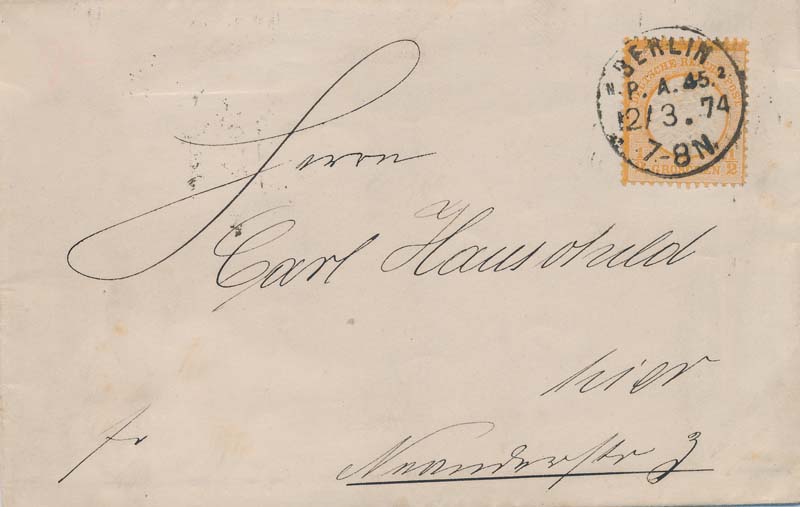 BERLIN
N. P. A. 45. 2
12/3. 74
7-8N.
DEUTSCHE REICHS-POST
1/2 GROSCHEN 1/2
Herrn
Carl Hauschild
hier
fr
Neanderstr 3